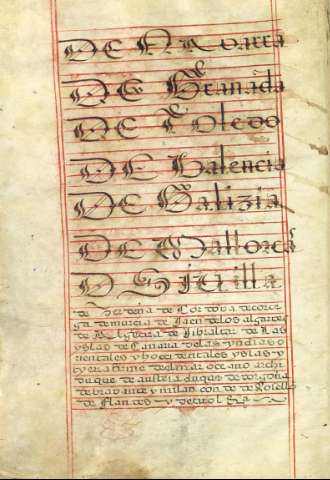 DE Navarra
DE Granada
DE Toledo
DE Valencia
DE Galizia
DE Mallorcas
D SEVilla
de Cerdena de Cordova de corce
ga de murcia de Jaen de los algarves
de Algezira de Gibraltar de las
yslas de Canaria de las yndias o
rientales y hocçidentales yslas y
tyerra firme del mar oceano archi
duque de austria duque de borgoña
de brabante y milan conde de
de Flandes y de tirol